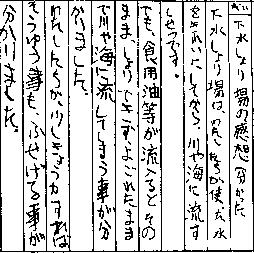 下水しょり場の感想 分かった
下水しょり場は、わたしたちが使った水
をきれいにしてから、川や海に流す
しせつです。
でも、食用油等が流入るとその
ままでは、しょりできず、よごれたまま
で川や海に流してしまう事が分
かりました。
わたしたちが、少しきょう力すれば
そうゆう事も、ふせげる事が
分かりました。